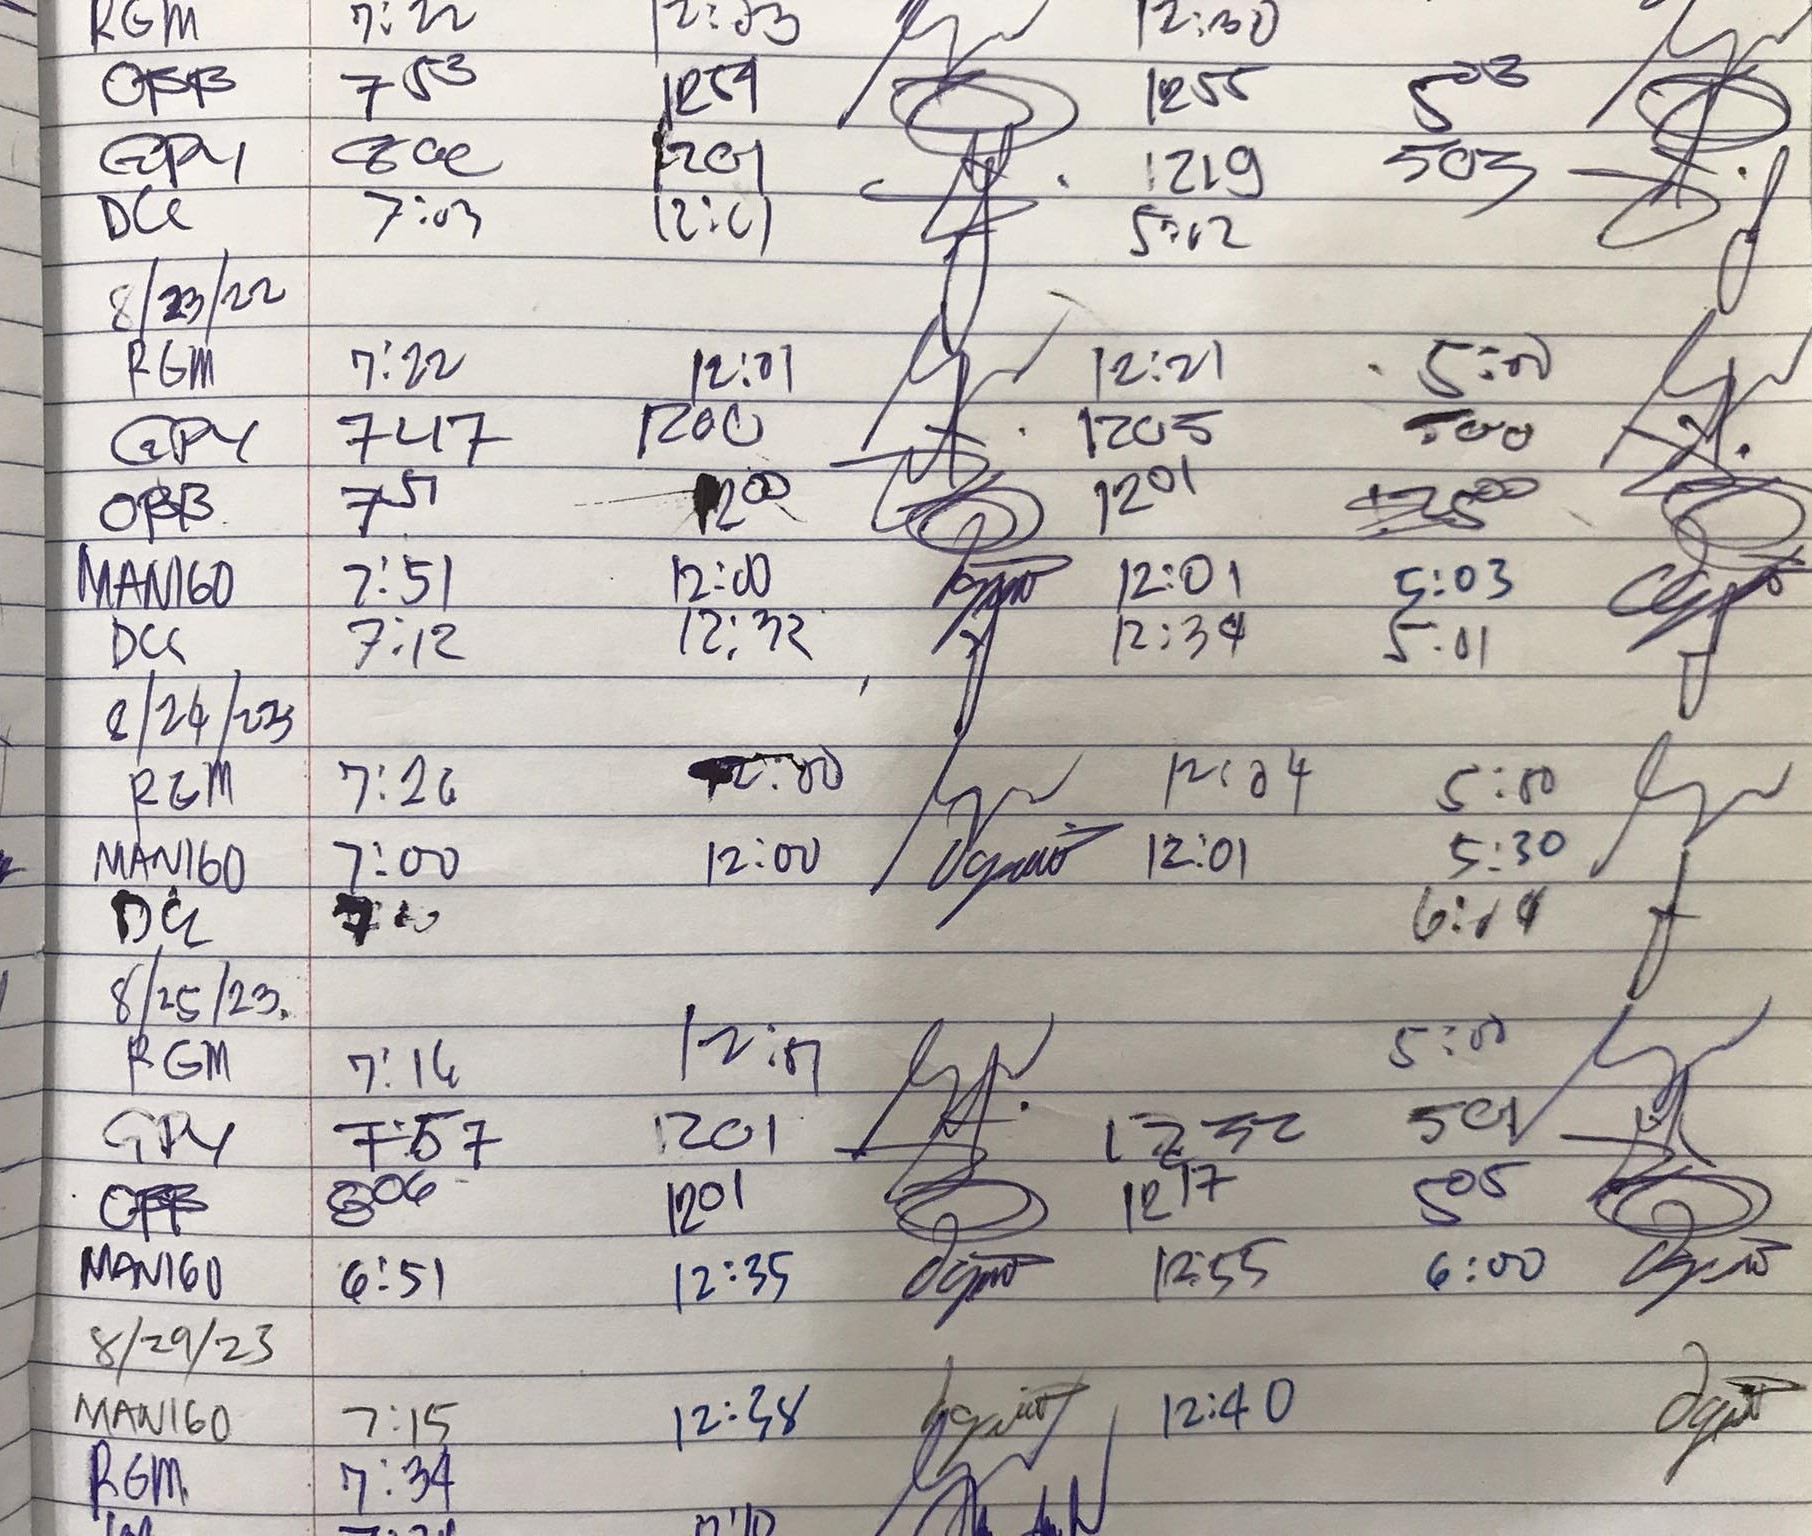 RGM 7:22 12:03 12:30
OBB 7 53 1254 1255 5 03
GPY 800 1201 1219 503
DCG 7:03 12:01 5:02
8/23/22
RGM 7:22 12:01 12:21 5:00
GPY 747 1200 1205 500
OBB 7 51 12 00 12 01 5 00
MANIGO 7:51 12:00 12:01 5:03
DCG 7:12 12:32 12:34 5:01
8/24/23
RGM 7:26 12:00 12:04 5:00
MANIGO 7:00 12:00 12:01 5:30
DCG 6:14
8/25/23.
RGM 7:16 12:01 5:00
GPY 7:57 1201 1232 501
OBB 8 06 12 01 12 17 5 05
MANIGO 6:51 12:35 12:55 6:00
8/29/23
MANIGO 7:15 12:38 12:40
RGM 7:34